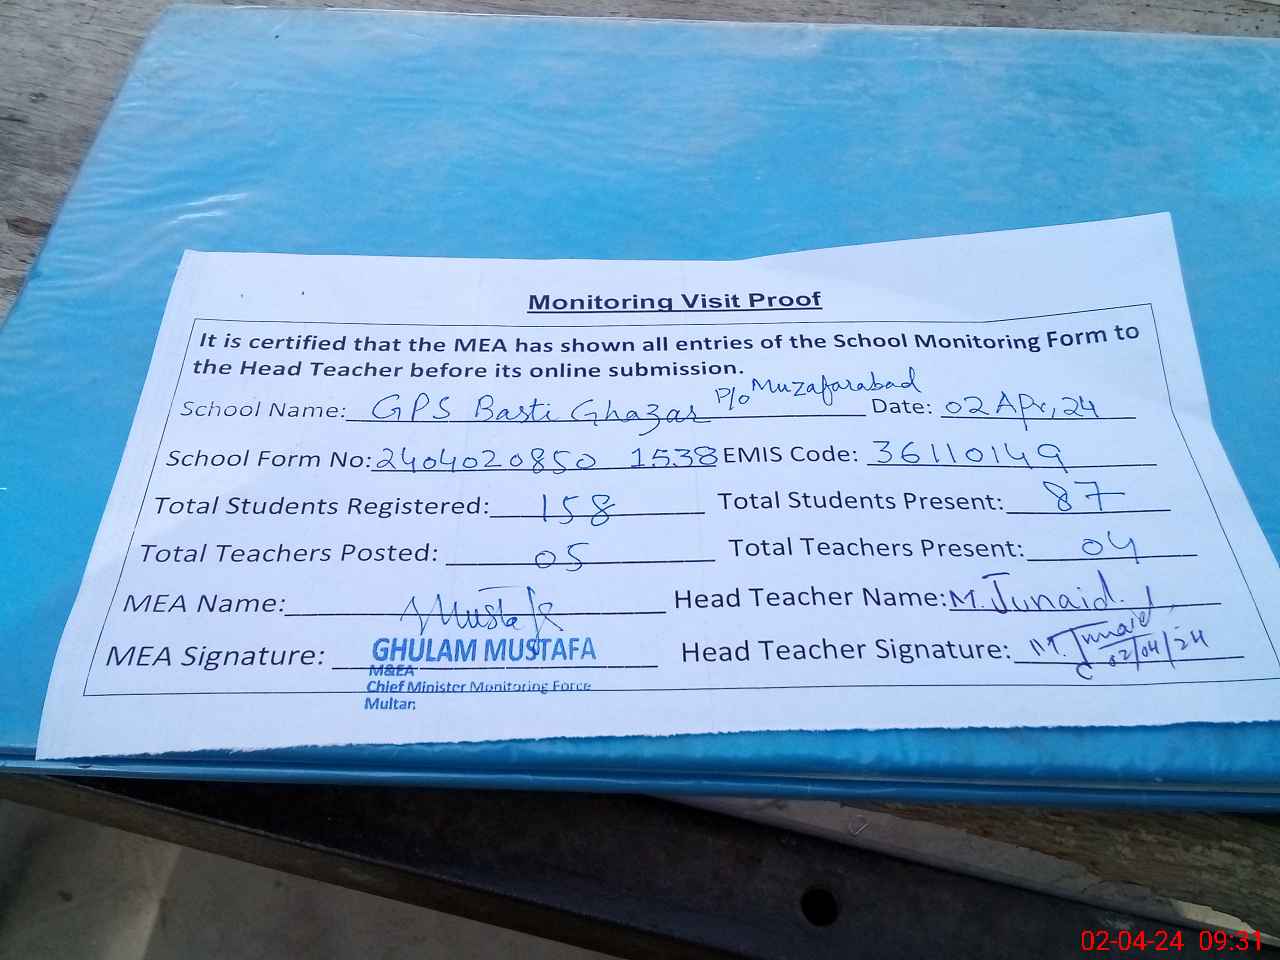 Monitoring Visit Proof
It is certified that the MEA has shown all entries of the School Monitoring Form to
the Head Teacher before its online submission.
School Name: GPS Basti Ghazar P/o Muzafarabad Date: 02 Apr, 24
School Form No: 2404020850 1538 EMIS Code: 36110149
Total Students Registered: 158 Total Students Present: 87
Total Teachers Posted: 05 Total Teachers Present: 04
MEA Name: Mustafa Head Teacher Name: M. Junaid.
MEA Signature: Head Teacher Signature: M. Junaid
02/04/24
GHULAM MUSTAFA
M&EA
Chief Minister Monitoring Force
Multan
02-04-24 09:31